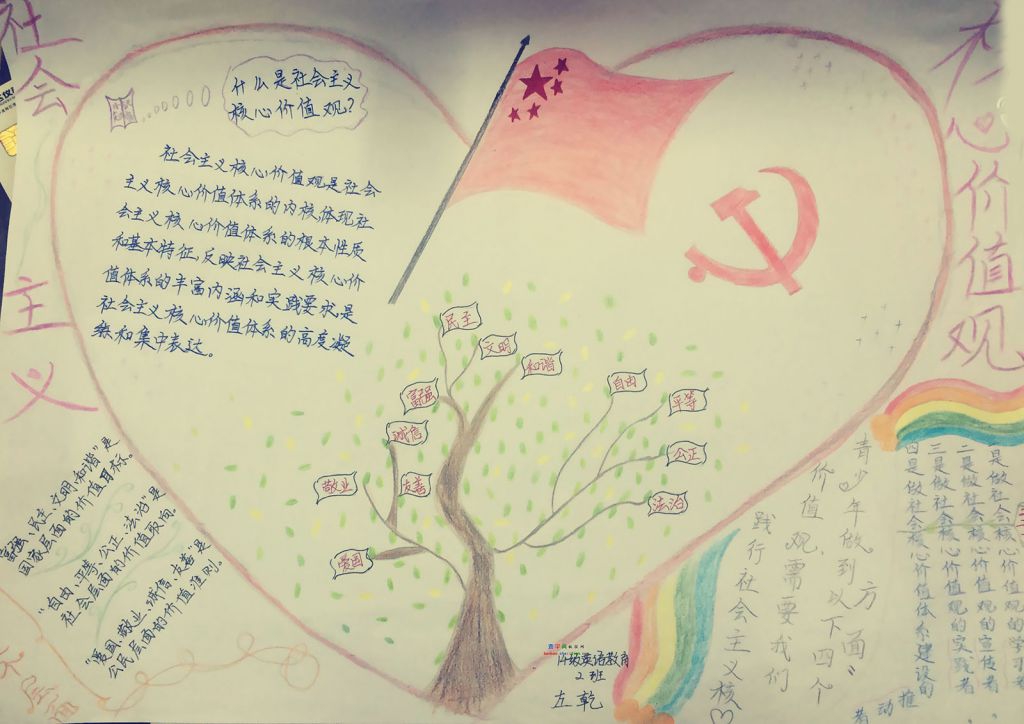 社会主义
核心价值观
什么是社会主义
核心价值观?
社会主义核心价值观是社会
主义核心价值体系的内核,体现社
会主义核心价值体系的根本性质
和基本特征,反映社会主义核心价
值体系的丰富内涵和实践要求,是
社会主义核心价值体系的高度凝
练和集中表达。
民主
文明
和谐
富强
诚信
自由
平等
公正
敬业
友善
法治
爱国
富强、民主、文明、和谐"是
国家层面的价值目标。
"自由、平等、公正、法治"是
社会层面的价值取向。
"爱国、敬业、诚信、友善"是
公民层面的价值准则。
青少年做到以下四个方面"
价值观,需要我们
践行社会主义核心
是做社会核心价值观的学习
二是做社会核心价值观的宣传者
三是做社会核心价值观的实践者
四是做社会核心价值体系建设的
推动者
14级英语教育
2班
左乾